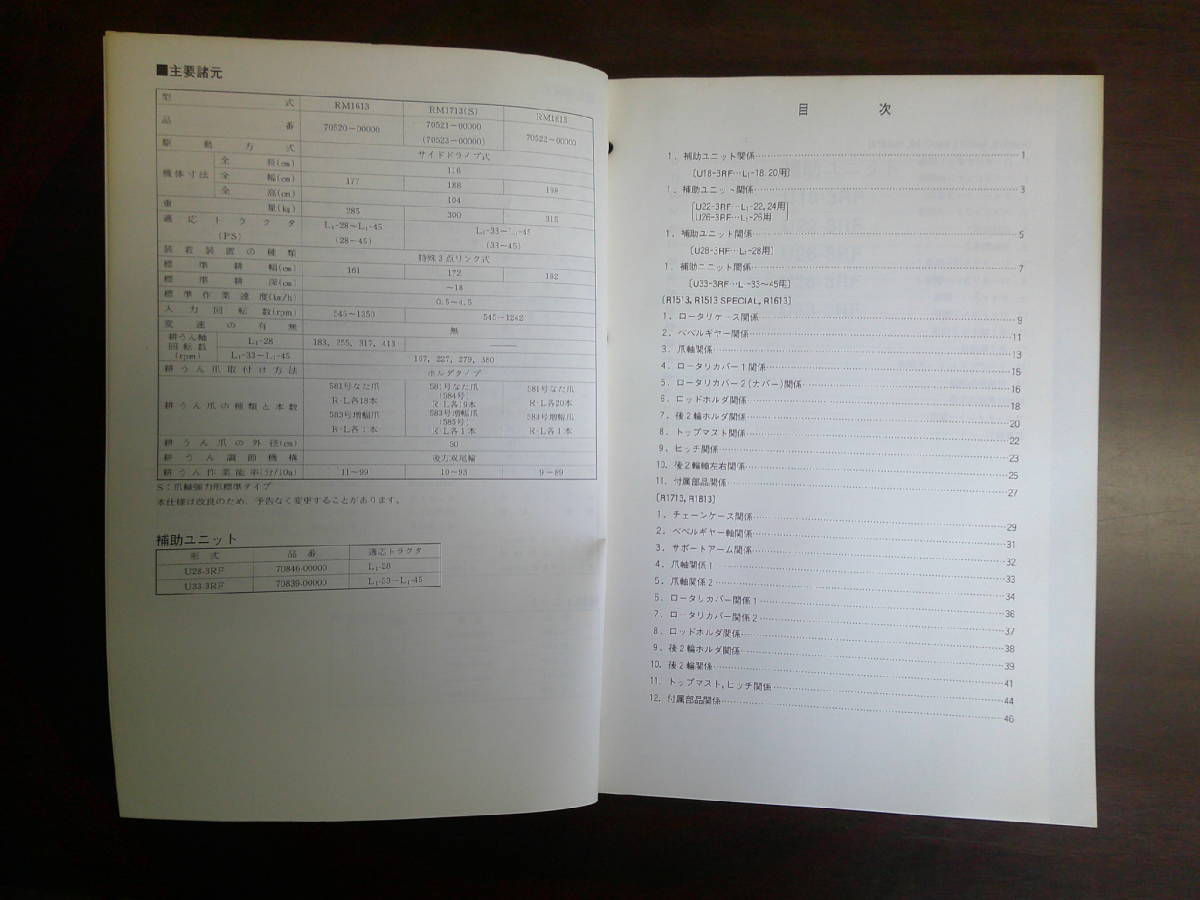 ■主要諸元
型式 RM1613 RM1713(S) RM1813
品番 70520-00000 70521-00000 (70523-00000) 70522-00000
駆動方式 サイドドライブ式
機体寸法 全長(cm) 116
全幅(cm) 177 188 198
全高(cm) 104
重量(kg) 285 300 315
適応トラクタ(PS) L₁-28~L₁-45 (28~45) L₁-33~L₁-45 (33~45)
装着装置の種類 特殊3点リンク式
標準耕幅(cm) 161 172 182
標準耕深(cm) ~18
標準作業速度(km/h) 0.5~4.5
入力回転数(rpm) 545~1350 545~1242
変速の有無 無
耕うん軸回転数(rpm) L₁-28 183, 255, 317, 413 ――
L₁-33~L₁-45 167, 227, 279, 380
耕うん爪取付け方法 ホルダタイプ
耕うん爪の種類と本数 581号なた爪 R・L各18本 583号増幅爪 R・L各1本 581号なた爪 (584号) R・L各19本 583号増幅爪 (585号) R・L各1本 581号なた爪 R・L各20本 583号増幅爪 R・L各1本
耕うん爪の外径(cm) 50
耕うん調節機構 後方双尾輪
耕うん作業能率(分/10a) 11~99 10~93 9~89
S:爪軸強力形標準タイプ
本仕様は改良のため、予告なく変更することがあります。
補助ユニット
形式 品番 適応トラクタ
U28-3RF 70846-00000 L₁-28
U33-3RF 70839-00000 L₁-33~L₁-45
目次
1. 補助ユニット関係…1
〔U18-3RF…L₁-18, 20用〕
1. 補助ユニット関係…3
〔U22-3RF…L₁-22, 24用
U26-3RF…L₁-26用〕
1. 補助ユニット関係…5
〔U28-3RF…L₁-28用〕
1. 補助ユニット関係…7
〔U33-3RF…L₁-33~45用〕
〔R1513, R1513 SPECIAL, R1613〕
1. ロータリケース関係…9
2. ベベルギヤー関係…11
3. 爪軸関係…13
4. ロータリカバー1関係…15
5. ロータリカバー2(ナバー)関係…16
6. ロッドホルダ関係…18
7. 後2輪ホルダ関係…20
8. トップマスト関係…22
9. ヒッチ関係…23
10. 後2輪軸左右関係…25
11. 付属部品関係…27
〔R1713, R1813〕
1. チェーンケース関係…29
2. ベベルギヤー軸関係…31
3. サポートアーム関係…32
4. 爪軸関係1…33
5. 爪軸関係2…34
6. ロータリカバー関係1…36
7. ロータリカバー関係2…37
8. ロッドホルダ関係…38
9. 後2輪ホルダ関係…39
10. 後2輪関係…41
11. トップマスト, ヒッチ関係…44
12. 付属部品関係…46